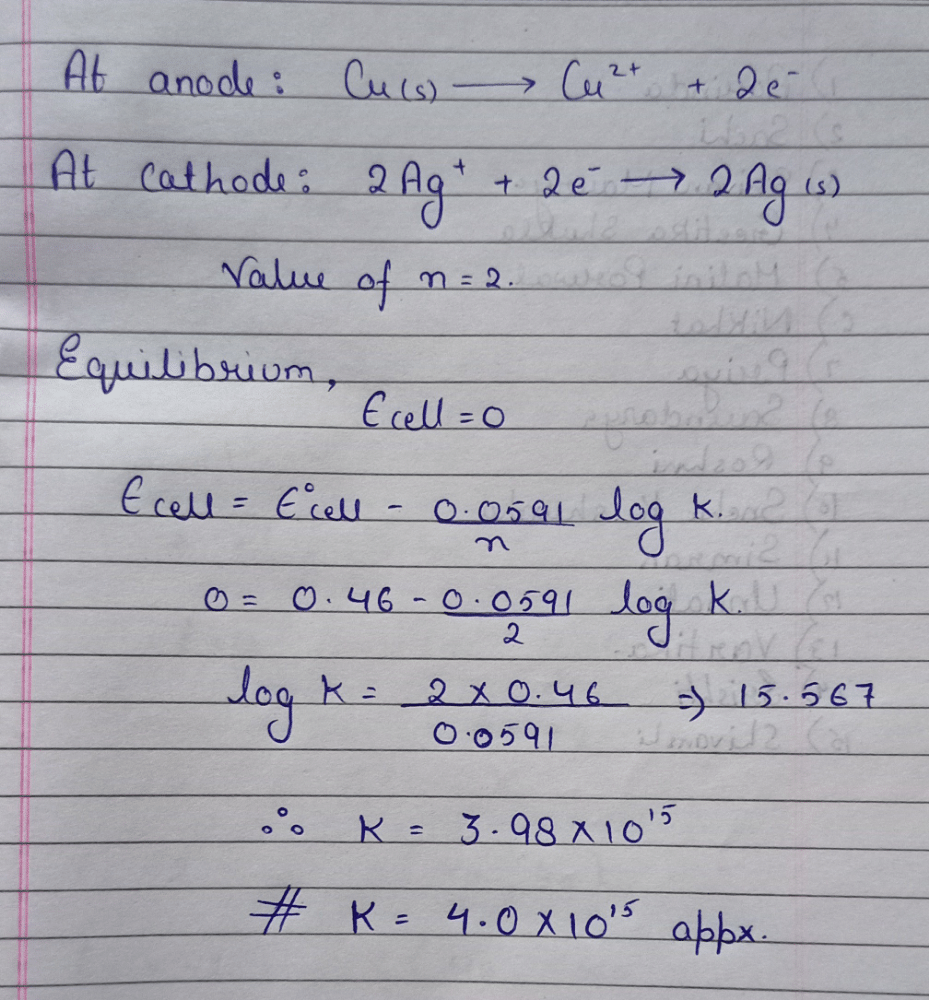 At anode: Cu(s) ⟶ Cu²⁺ + 2e⁻
At Cathode: 2Ag⁺ + 2e⁻ ⟶ 2Ag(s)
Value of n = 2.
Equilibrium,
Ecell = 0
Ecell = E°cell - 0.0591/n log K.
0 = 0.46 - 0.0591/2 log K.
log K = 2 × 0.46/0.0591 ⇒ 15.567
∴ K = 3.98 × 10¹⁵
# K = 4.0 × 10¹⁵ appx.